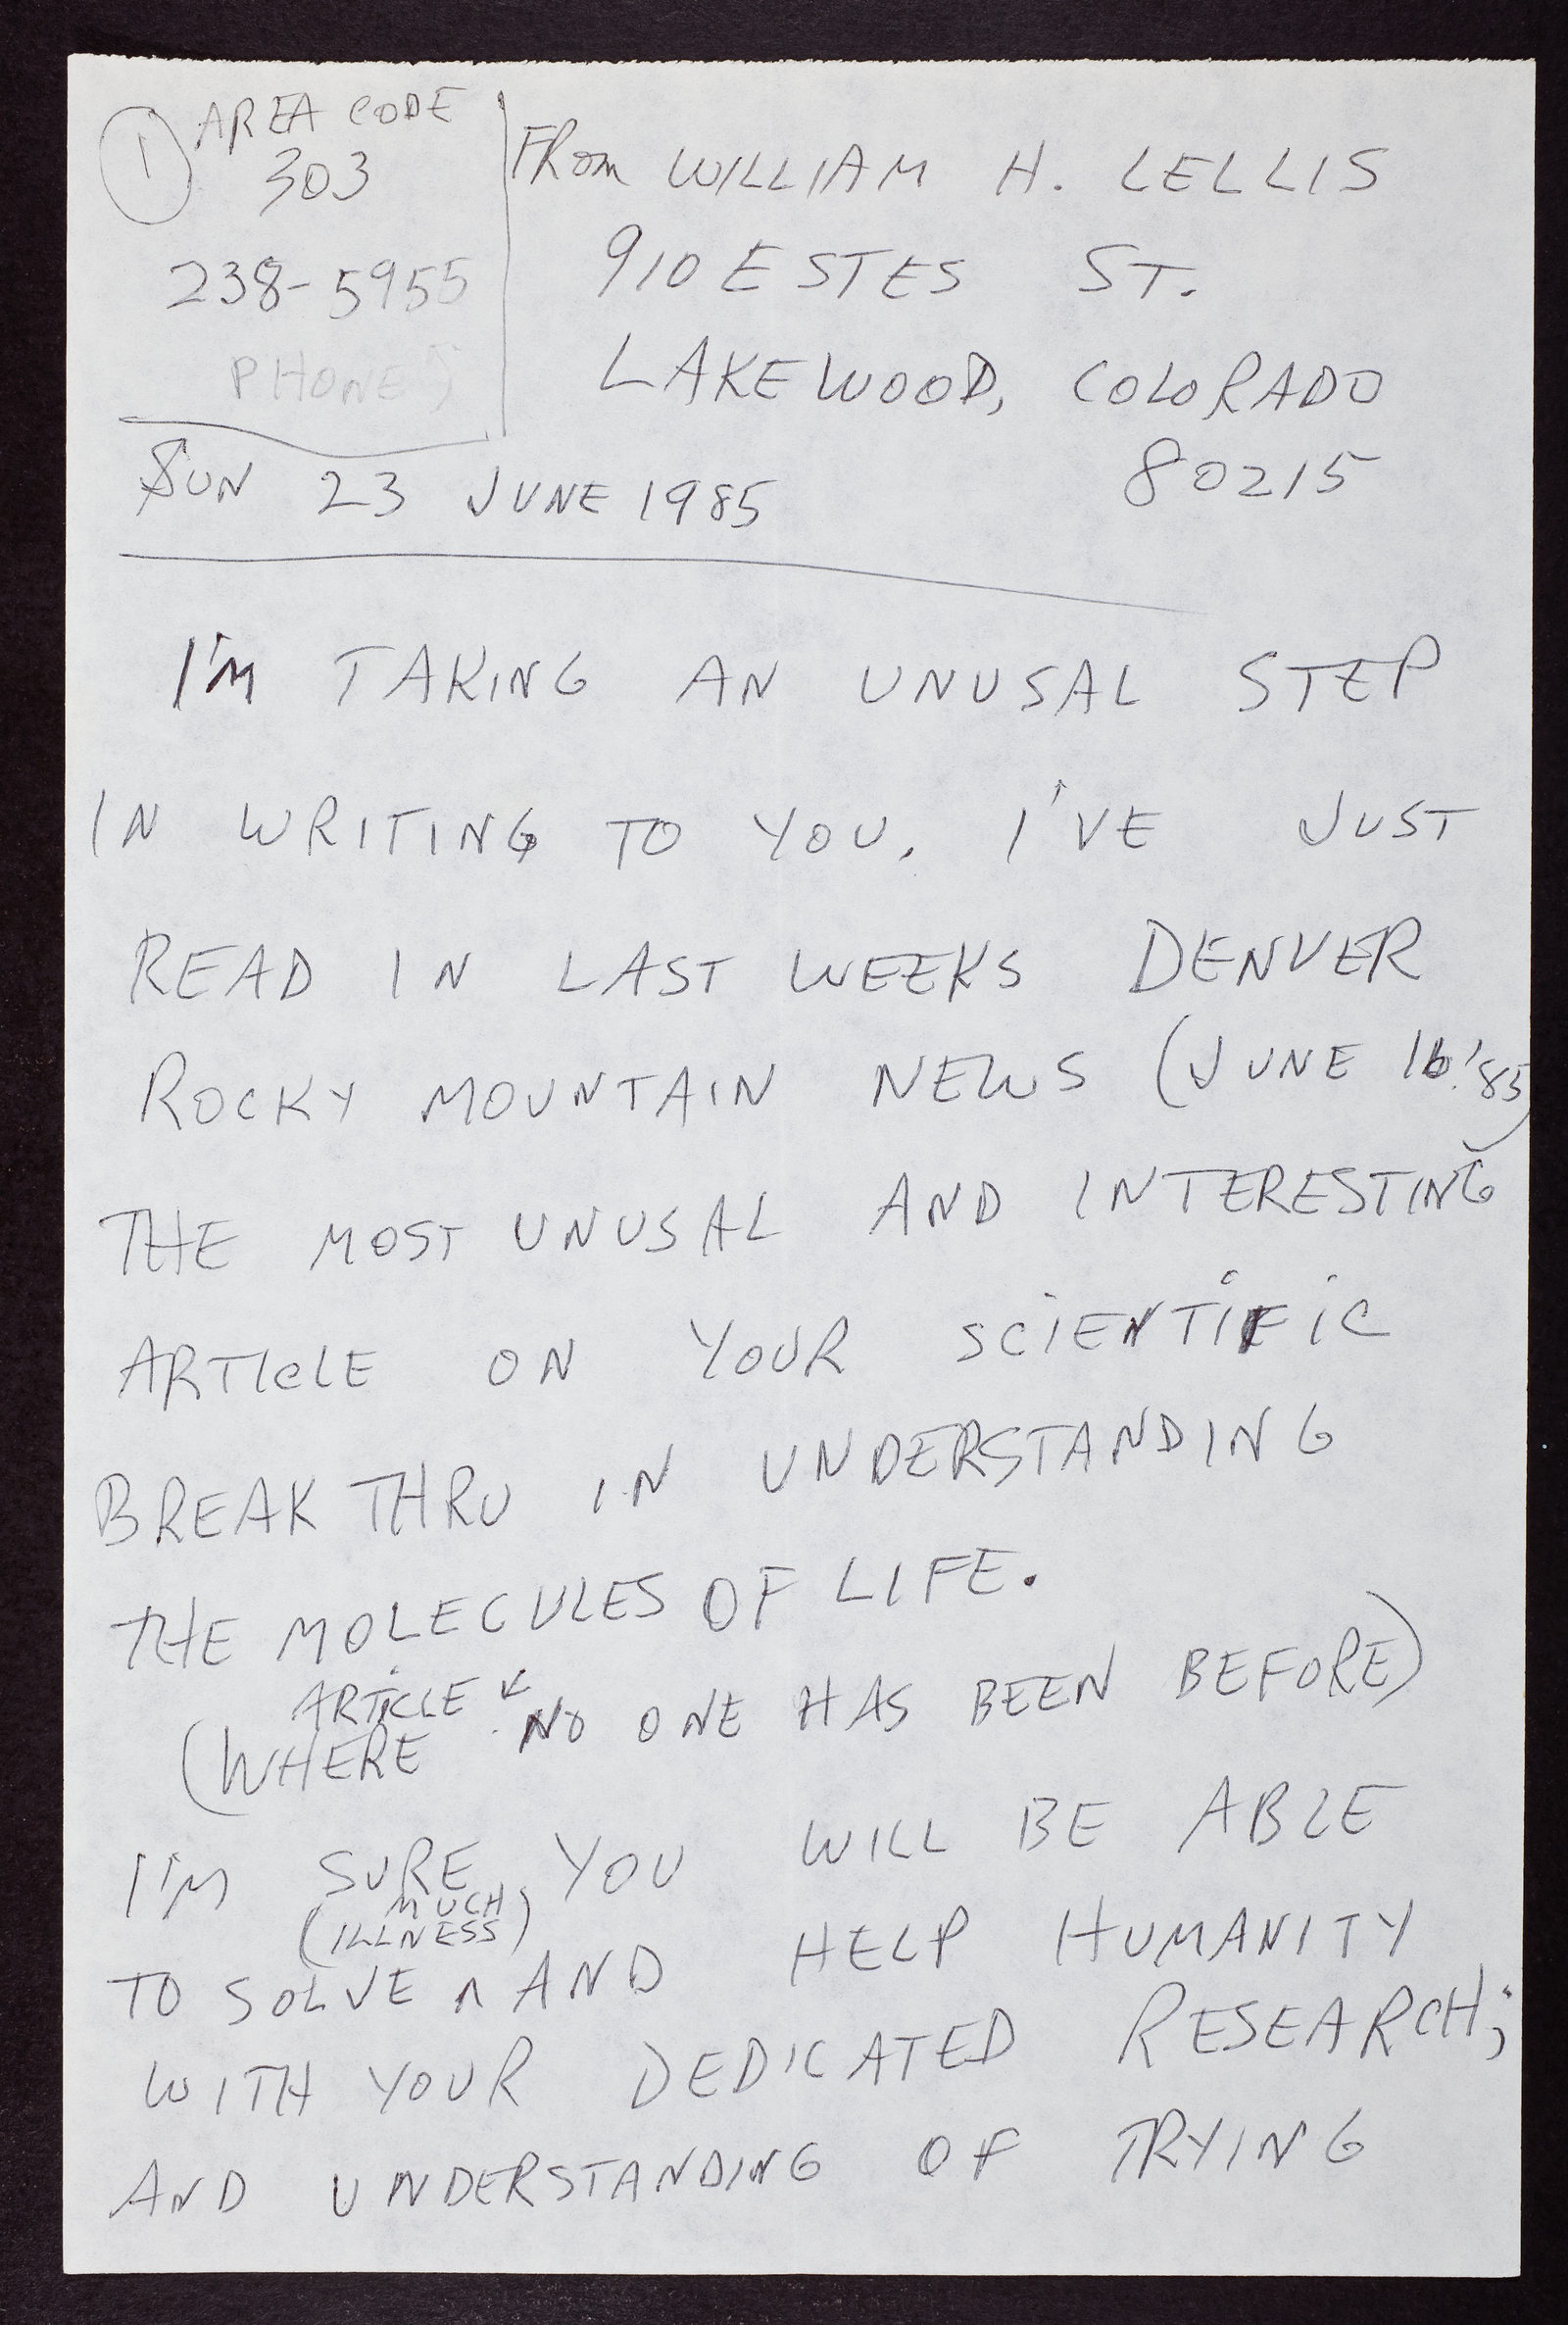 1 AREA CODE
303
238-5955
PHONE)
FROM WILLIAM H. LELLIS
910 ESTES ST.
LAKEWOOD, COLORADO
80215
SUN 23 JUNE 1985
I'M TAKING AN UNUSAL STEP
IN WRITING TO YOU. I'VE JUST
READ IN LAST WEEKS DENVER
ROCKY MOUNTAIN NEWS (JUNE 16 '85)
THE MOST UNUSAL AND INTERESTING
ARTICLE ON YOUR SCIENTIFIC
BREAK THRU IN UNDERSTANDING
THE MOLECULES OF LIFE.
ARTICLE
(WHERE NO ONE HAS BEEN BEFORE)
I'M SURE YOU WILL BE ABLE
MUCH
(ILLNESS)
TO SOLVE ^ AND HELP HUMANITY
WITH YOUR DEDICATED RESEARCH;
AND UNDERSTANDING OF TRYING